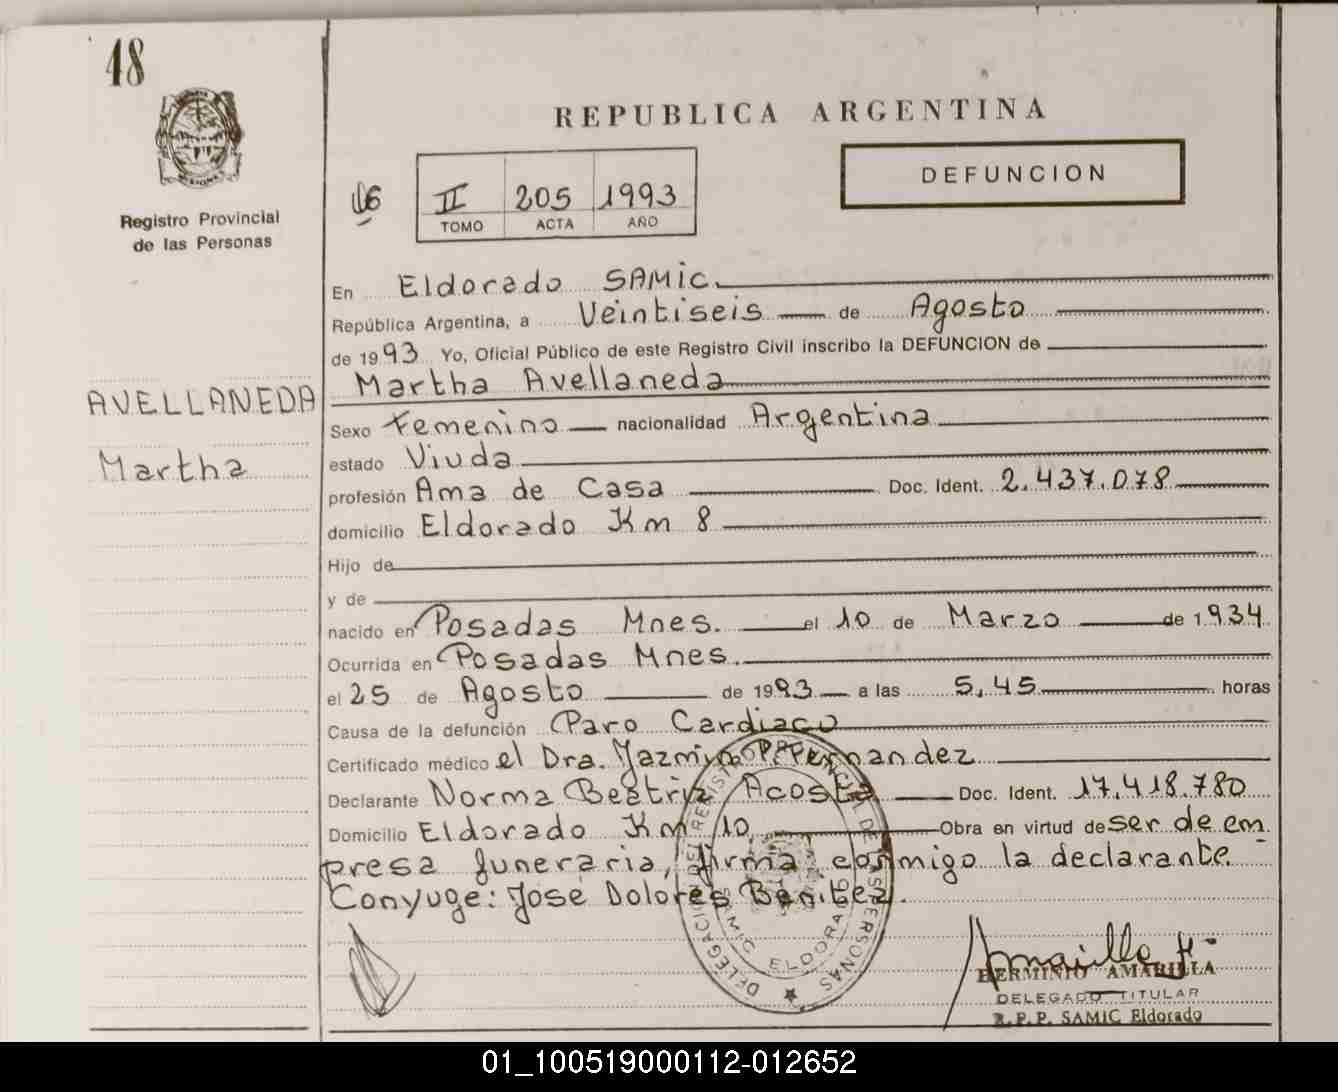 48
REPUBLICA ARGENTINA
DEFUNCION
Registro Provincial
de las Personas
II 205 1993
TOMO ACTA AÑO
En Eldorado SAMIC.
República Argentina, a Veintiseis de Agosto
de 1993 Yo, Oficial Público de este Registro Civil inscribo la DEFUNCION de
AVELLANEDA
Martha
Martha Avellaneda
Sexo Femenino nacionalidad Argentina
estado Viuda
profesión Ama de Casa Doc. Ident. 2.437.078
domicilio Eldorado Km 8
Hijo de
y de
nacido en Posadas Mnes. el 10 de Marzo de 1934
Ocurrida en Posadas Mnes.
el 25 de Agosto de 1993 a las 5,45 horas
Causa de la defunción Paro Cardiaco
Certificado médico el Dra. Yazmin
Declarante Norma Beatriz Acosta Doc. Ident. 17.418.780
Domicilio Eldorado Km 10 Obra en virtud de ser de em
presa funeraria, firma conmigo la declarante.
Conyuge: José Dolores Benitez.
DELEGACION DEL REGISTRO PROVINCIAL DE LAS PERSONAS
SAMIC ELDORADO
HERMINIO AMARILLA
DELEGADO TITULAR
R.P.P. SAMIC Eldorado
01_100519000112-012652